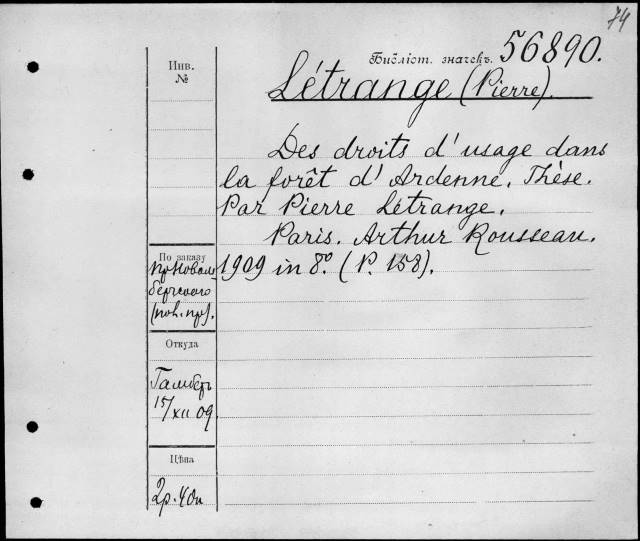 74
Инв.
№
Библіот. значекъ. 56890.
Létrange (Pierre).
Des droits d'usage dans
la forêt d'Ardenne. Thèse.
Par Pierre Létrange.
Paris. Arthur Rousseau.
1909 in 8º. (P. 158).
По заказу
пр. Новом-
бергскаго
Откуда
Гамберъ
15/XII 09.
Цѣна
2р. 40к